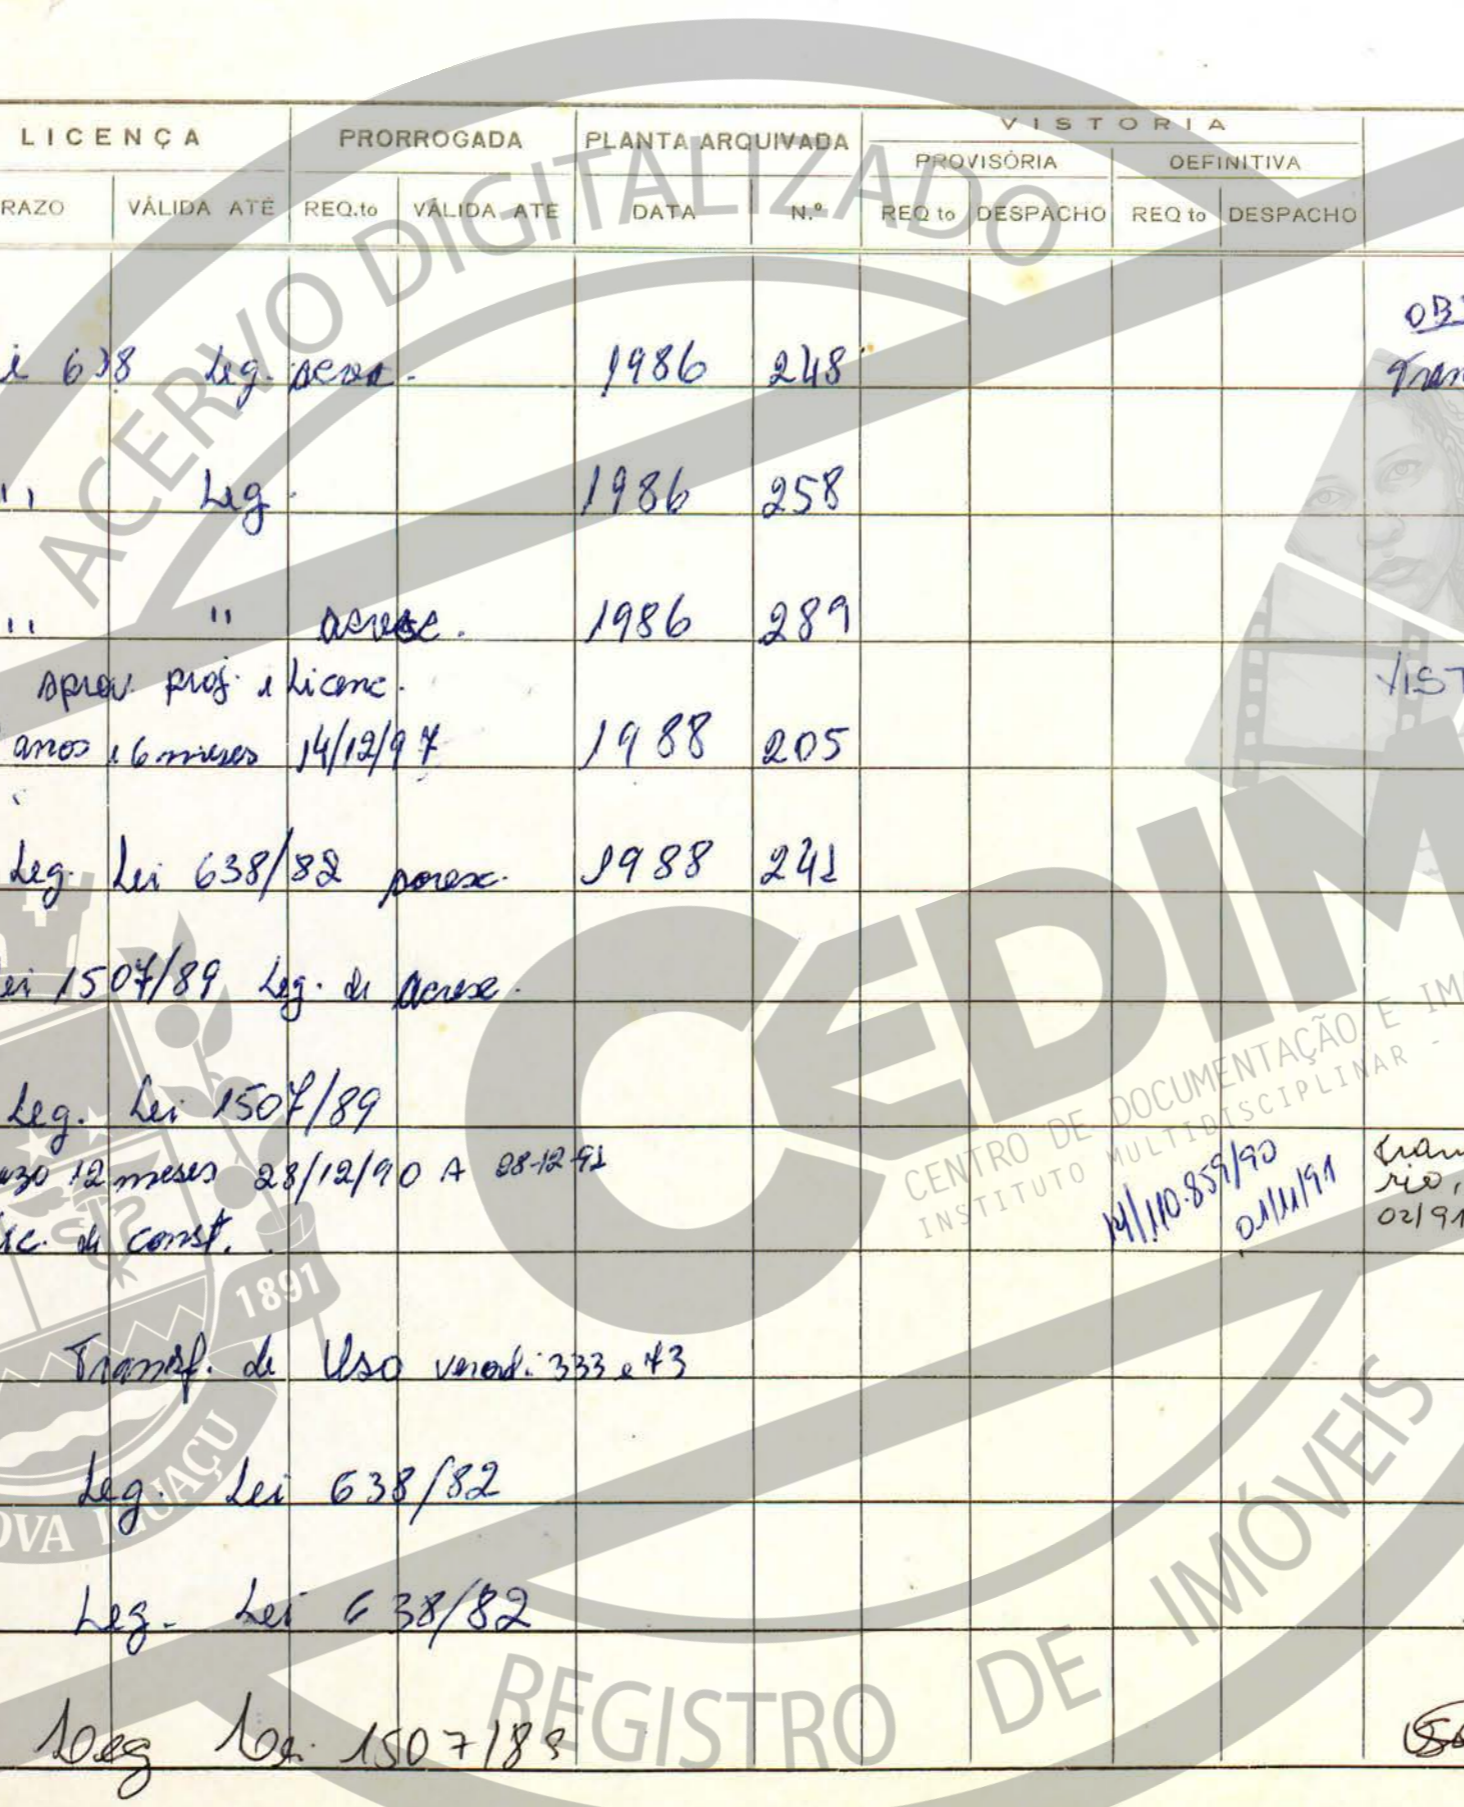 LICENÇA PRORROGADA PLANTA ARQUIVADA VISTORIA
PROVISÓRIA DEFINITIVA
RAZO VÁLIDA ATÉ REQ.to VÁLIDA ATÉ DATA N.º REQ to DESPACHO REQ to DESPACHO
638 Leg. 1986 248
" Leg. 1986 258
" " acresc. 1986 289
Aprov. proj. e Licenc. VIST
anos e 6 meses 14/12/97 1988 205
Leg. Lei 638/82 1988 241
ei 1507/89 Leg. de acresc.
Leg. Lei 1507/89
azo 12 meses 28/12/90 A 28-12-91 14/110.859/90 01/11/91
ic. de const. 02/91
Transf. de Uso 333 e 73
Leg. Lei 638/82
Leg. Lei 638/82
Leg Lei 1507/89
ACERVO DIGITALIZADO
CEDIM
CENTRO DE DOCUMENTAÇÃO E IM
INSTITUTO MULTIDISCIPLINAR -
1891
OVA IGUAÇU
REGISTRO DE IMÓVEIS